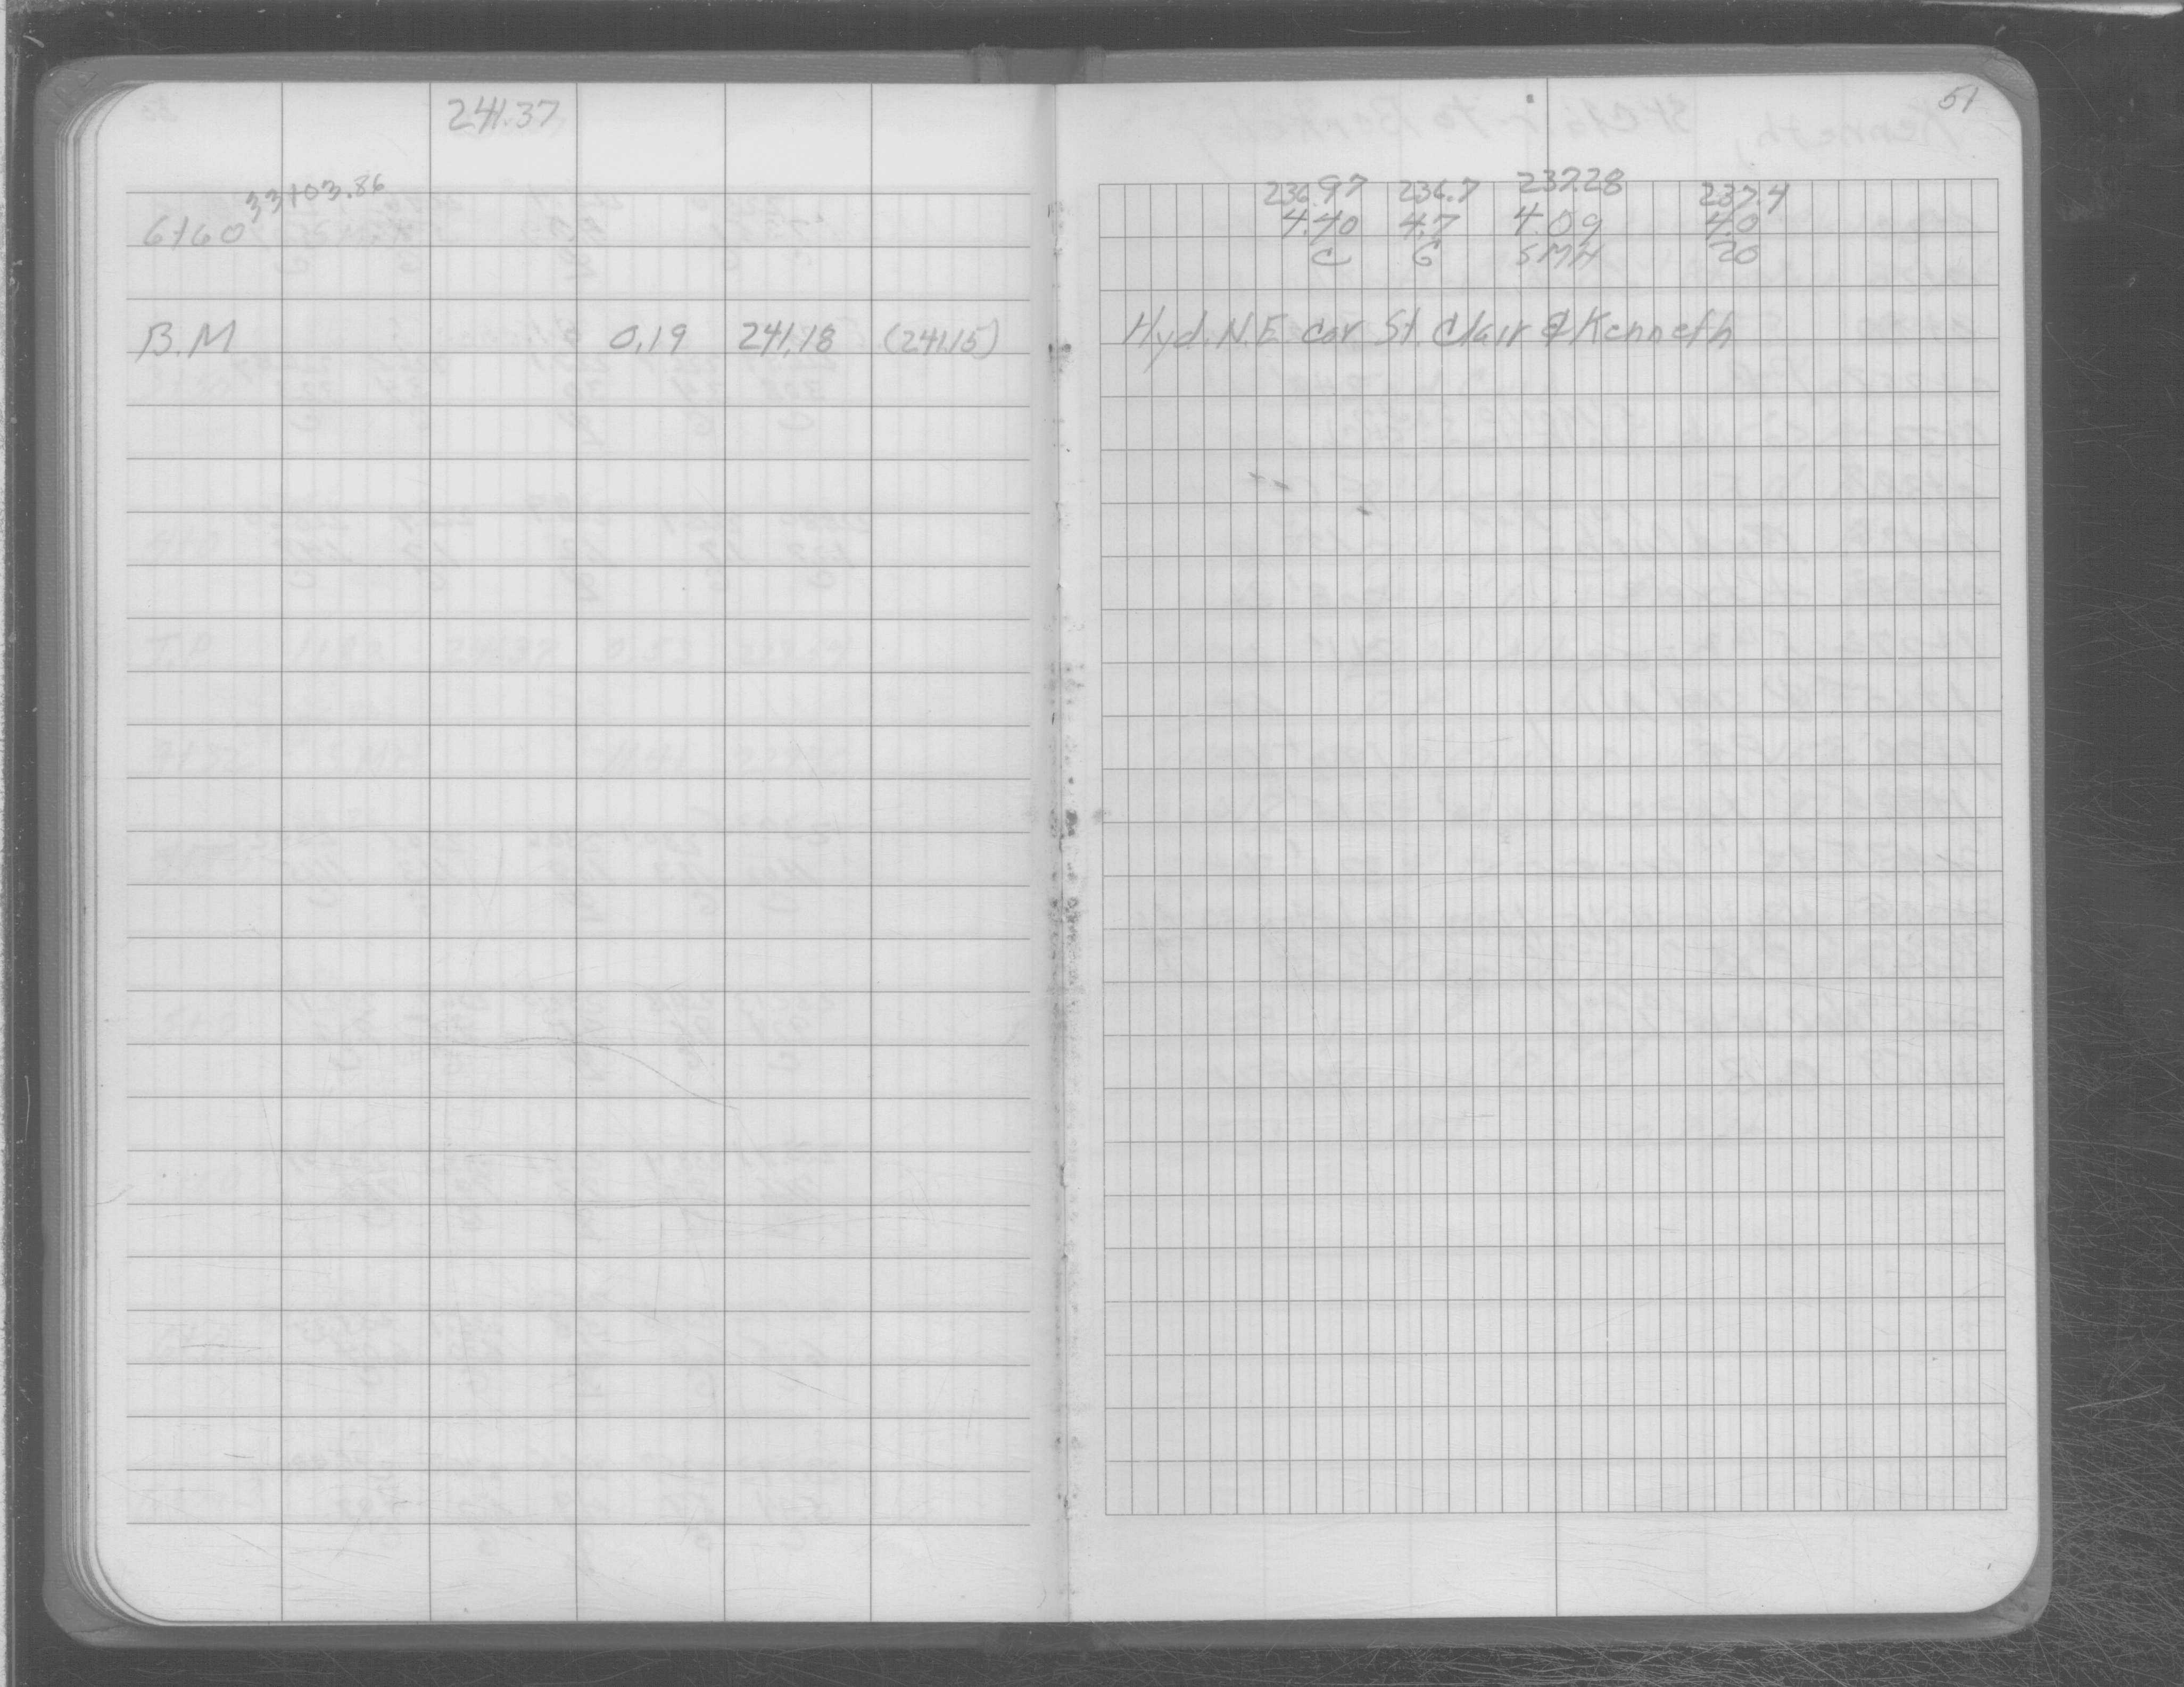 241.37
51
33+03.86
236.97 236.7 237.28 237.4
6+60 4.40 4.7 4.09 4.0
C G SMH 20
B.M 0.19 241.18 (241.15) Hyd. N.E cor St. Clair & Kenneth